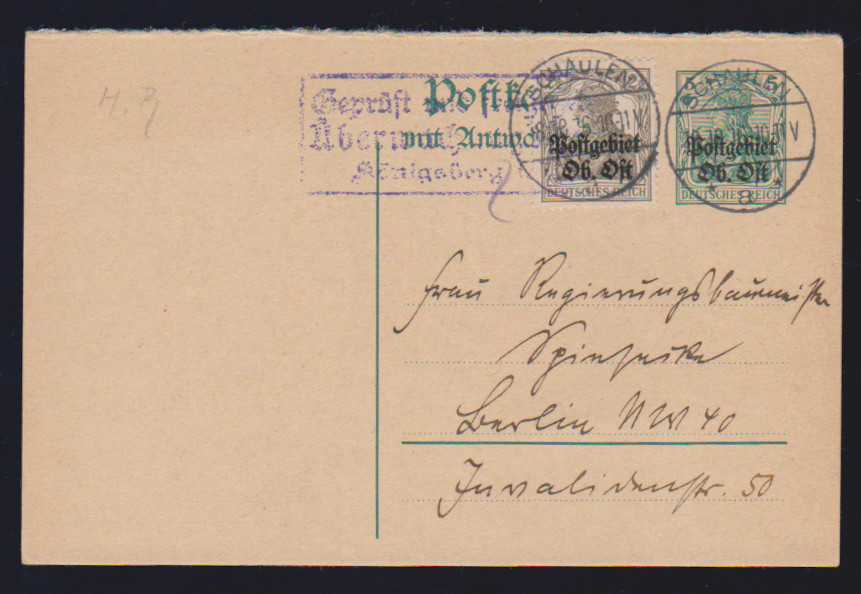 M. R
Geprüft und
Überwach
Königsberg
Postka
mit Antwo
SCHAULEN
Postgebiet
Ob. Ost
DEUTSCHES REICH
SCHAULEN
10-11 V
Postgebiet
Ob. Ost
DEUTSCHES REICH
a
Frau Regierungsbaumeister
Berlin NW 40
Invalidenstr. 50